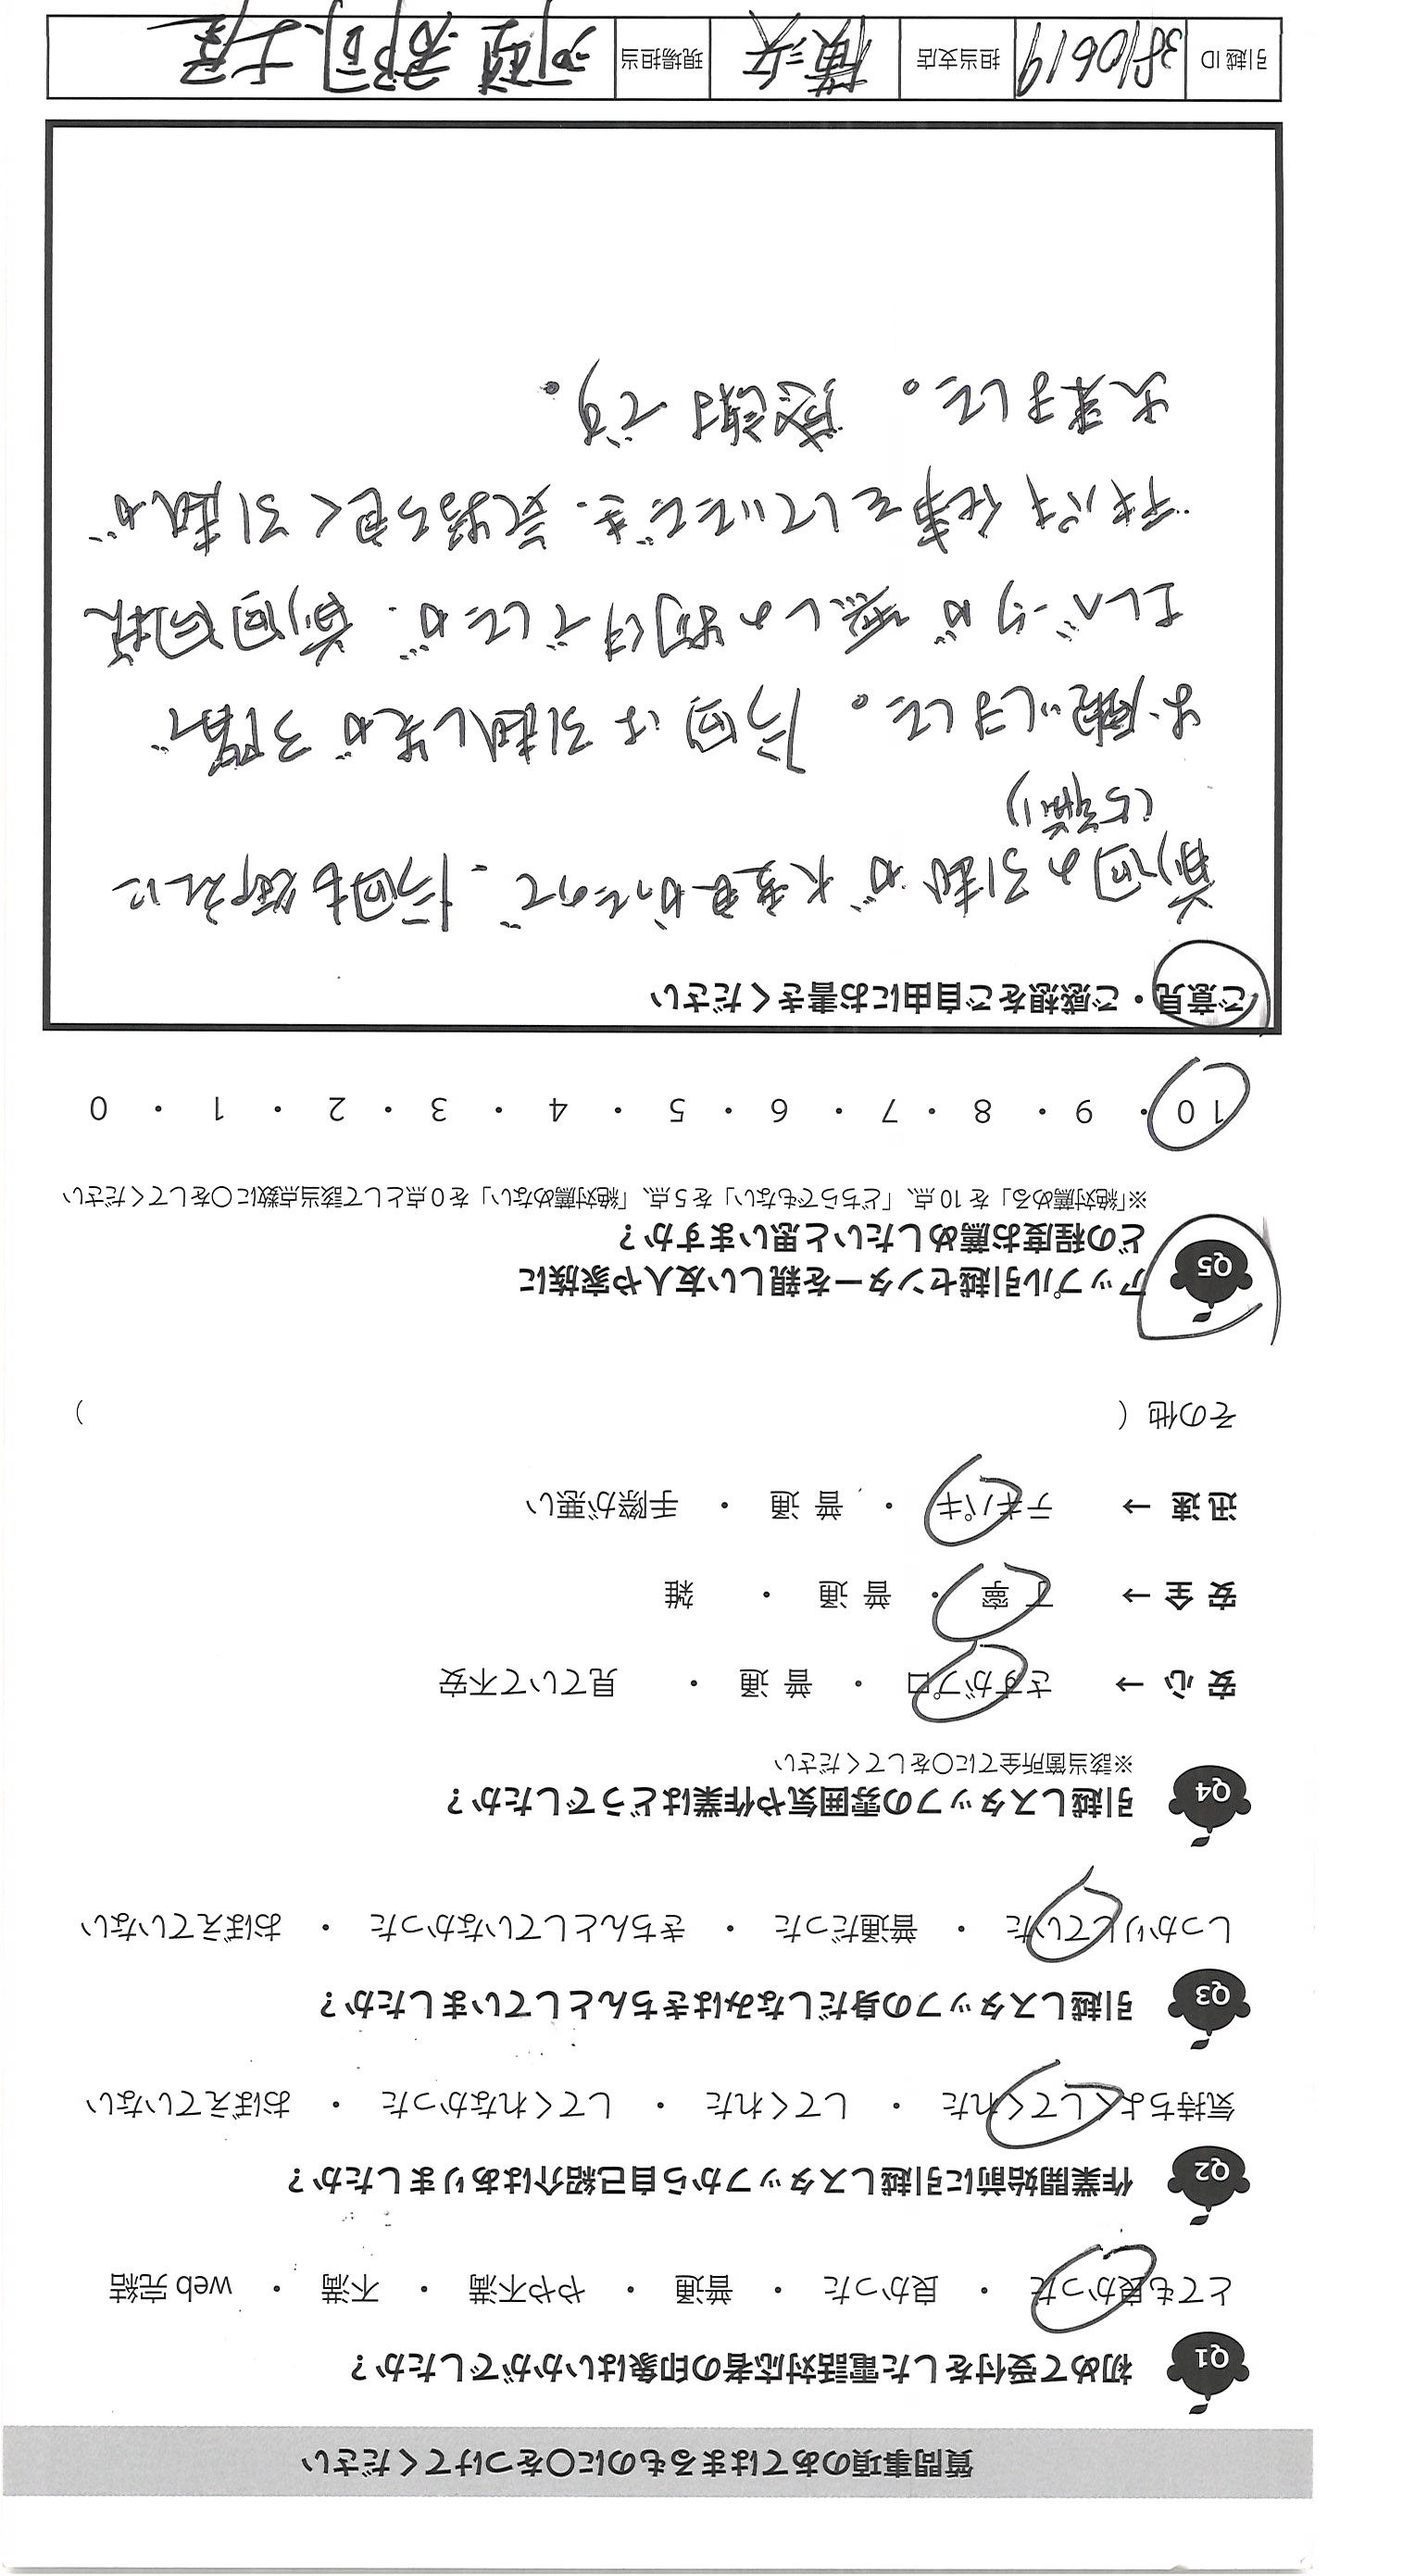 質問事項のあてはまるものに○をつけてください
Q1 初めて受付をした電話対応者の印象はいかがでしたか？
とても良かった ・ 良かった ・ 普通 ・ やや不満 ・ 不満 ・ web 完結
Q2 作業開始前に引越しスタッフから自己紹介はありましたか？
気持ちよくしてくれた ・ してくれた ・ してくれなかった ・ おぼえていない
Q3 引越しスタッフの身だしなみはきちんとしていましたか？
しっかりしていた ・ 普通だった ・ きちんとしていなかった ・ おぼえていない
Q4 引越しスタッフの雰囲気や作業はどうでしたか？
※該当箇所全てに○をしてください
安 心 → さすがプロ ・ 普 通 ・ 見ていて不安
安 全 → 丁 寧 ・ 普 通 ・ 雑
迅 速 → テキパキ ・ 普 通 ・ 手際が悪い
その他 （ ）
Q5 アップル引越センターを親しい友人や家族に
どの程度お薦めしたいと思いますか？
※「絶対薦める」を 10 点、「どちらでもない」を 5 点、「絶対薦めない」を 0 点として該当点数に○をしてください
10 ・ 9 ・ 8 ・ 7 ・ 6 ・ 5 ・ 4 ・ 3 ・ 2 ・ 1 ・ 0
ご意見・ご感想をご自由にお書きください
前回の引越が大変良かったので、今回も御社に
お願いしました。 今回は引越し先が3階で
エレベータが無しの物件でしたが、前回同様
テキパキ仕事をしていただき、気持ち良く引越が
出来ました。 感謝です。
引越 ID 3810619 担当支店 横浜 現場担当 河頭 郡司 土屋